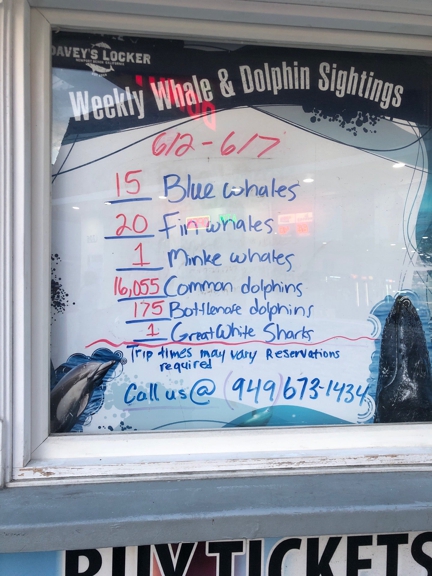 DAVEY'S LOCKER
Weekly Whale & Dolphin Sightings
6/2 - 6/7
15 Blue whales
20 Fin whales
1 Minke whales
16,055 Common dolphins
175 Bottlenose dolphins
1 Great White Sharks
Trip times may vary Reservations
required
Call us @ (949) 673-1434
BUY TICKETS